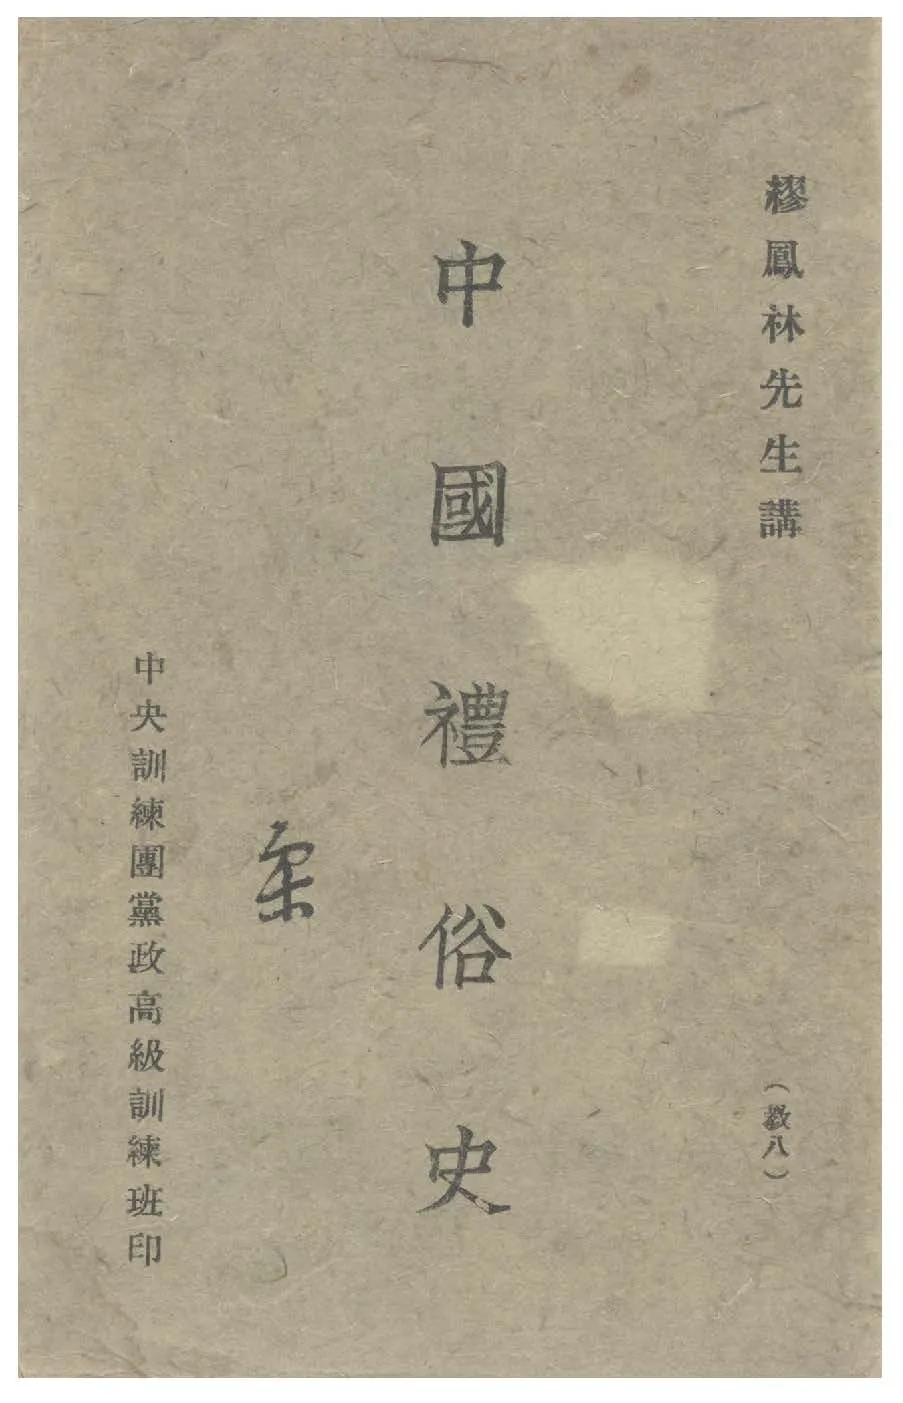 繆鳳林先生講
(教八)
中國禮俗史
中央訓練團黨政高級訓練班印